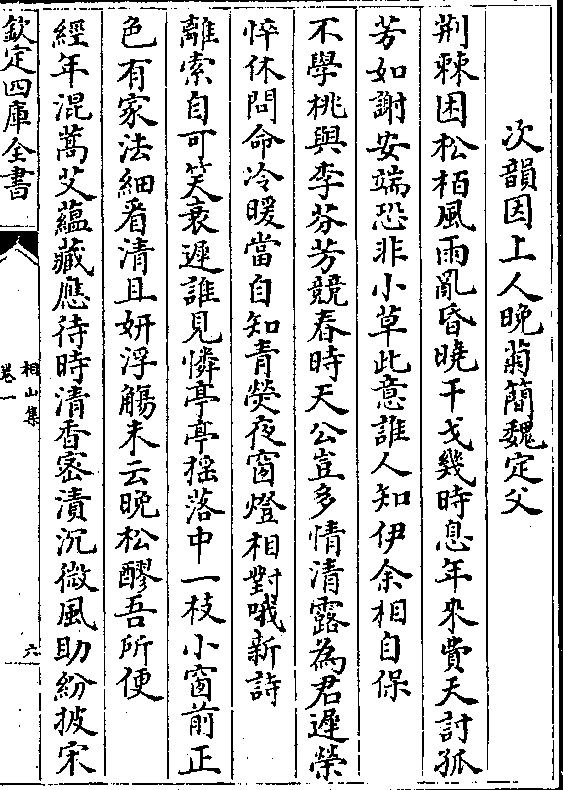 次韻因上人晚菊簡魏定父
荆棘困松栢風雨亂昏曉干戈幾時息年來費天討孤
芳如謝安端恐非小草此意誰人知伊余相自保
不學桃與李芬芳競春時天公豈多情清露為君遲榮
悴休問命冷暖當自知青熒夜窗燈相對哦新詩
離索自可笑衰遲誰見憐亭亭揺落中一枝小窗前正
色有家法細看清且妍浮觴未云晚松醪吾所便
經年混蒿艾藴藏應待時清香宻漬沉微風助紛披宋
欽定四庫全書
相山集
卷一
六